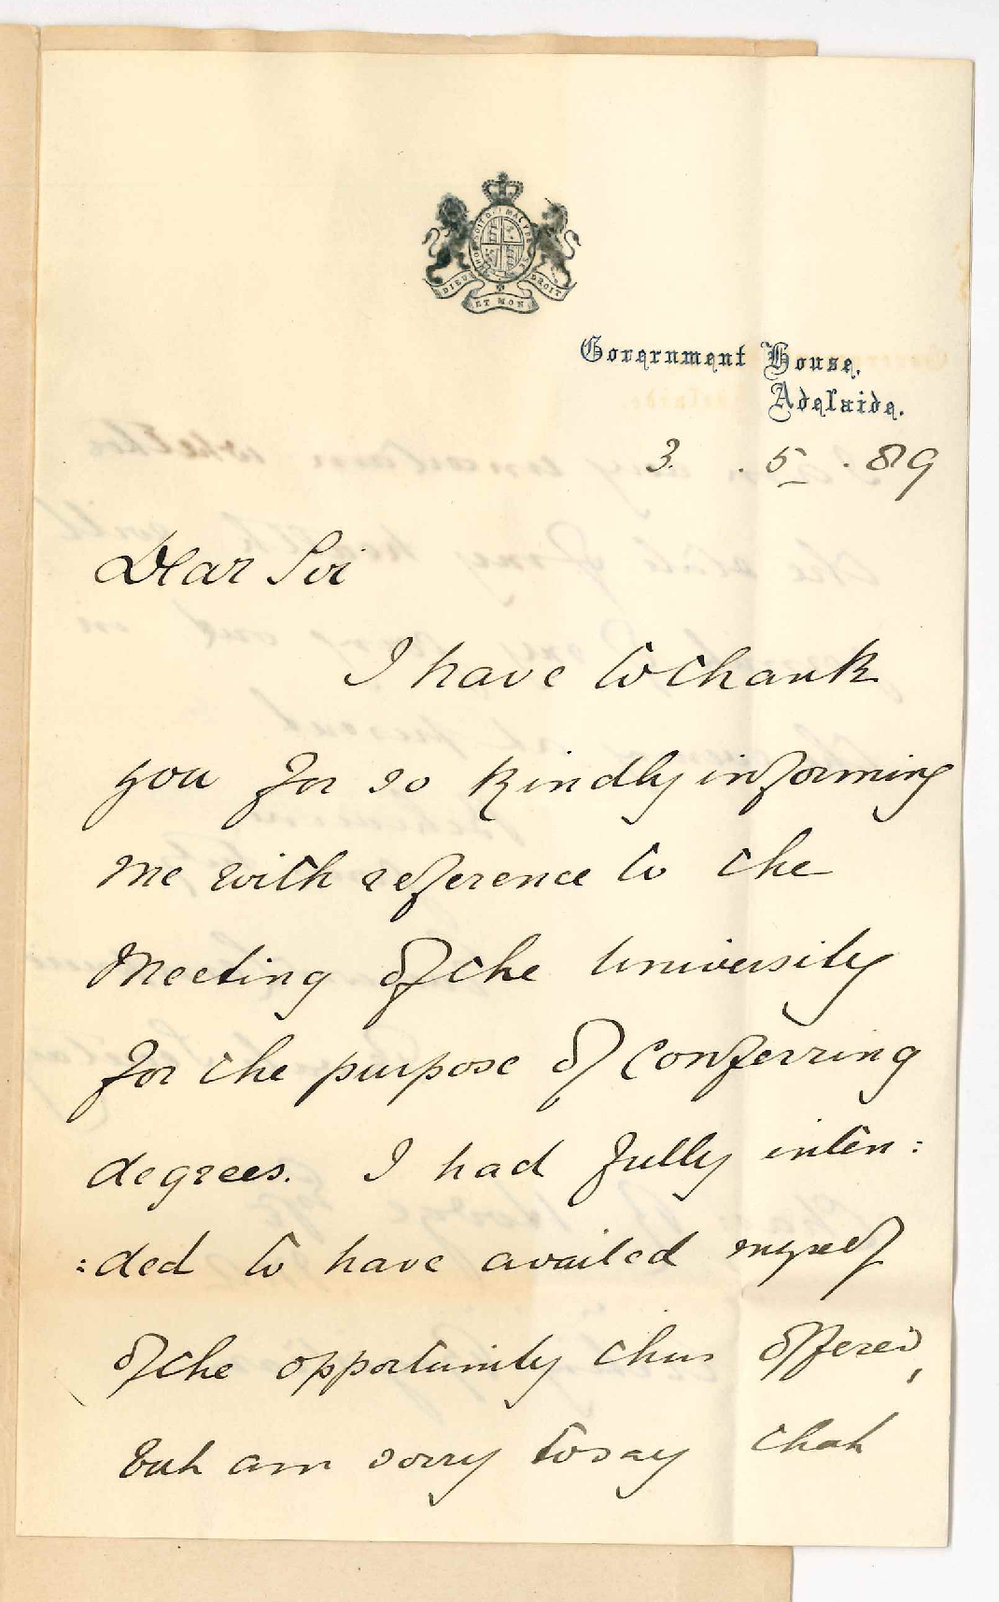 HONI SOIT QUI MAL Y PENSE
DIEU ET MON DROIT
Government House,
Adelaide.
3 . 5 . 89
Dear Sir
I have to thank
you for so kindly informing
me with reference to the
Meeting of the University
for the purpose of conferring
degrees. I had fully inten:
:ded to have availed myself
of the opportunity thus offered,
but am sorry to say that